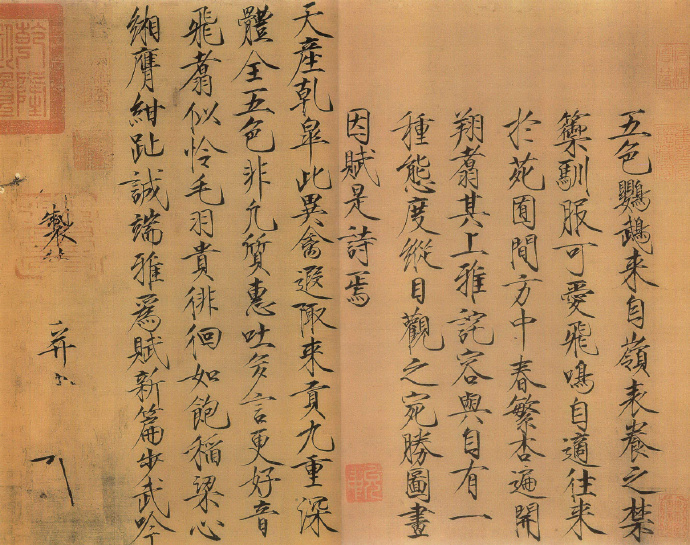 五色鸚鵡来自嶺表養之禁
籞馴服可愛飛鳴自適往来
於苑囿間方中春繁杏遍開
翔翥其上雅詫容與自有一
種態度縱目觀之宛勝圖畫
因賦是詩焉
天産乹皐此異禽遐陬来貢九重深
體全五色非凡質惠吐多言更好音
飛翥似憐毛羽貴徘徊如飽稻粱心
緗膺紺趾誠端雅爲賦新篇步武吟
製
并
乾隆